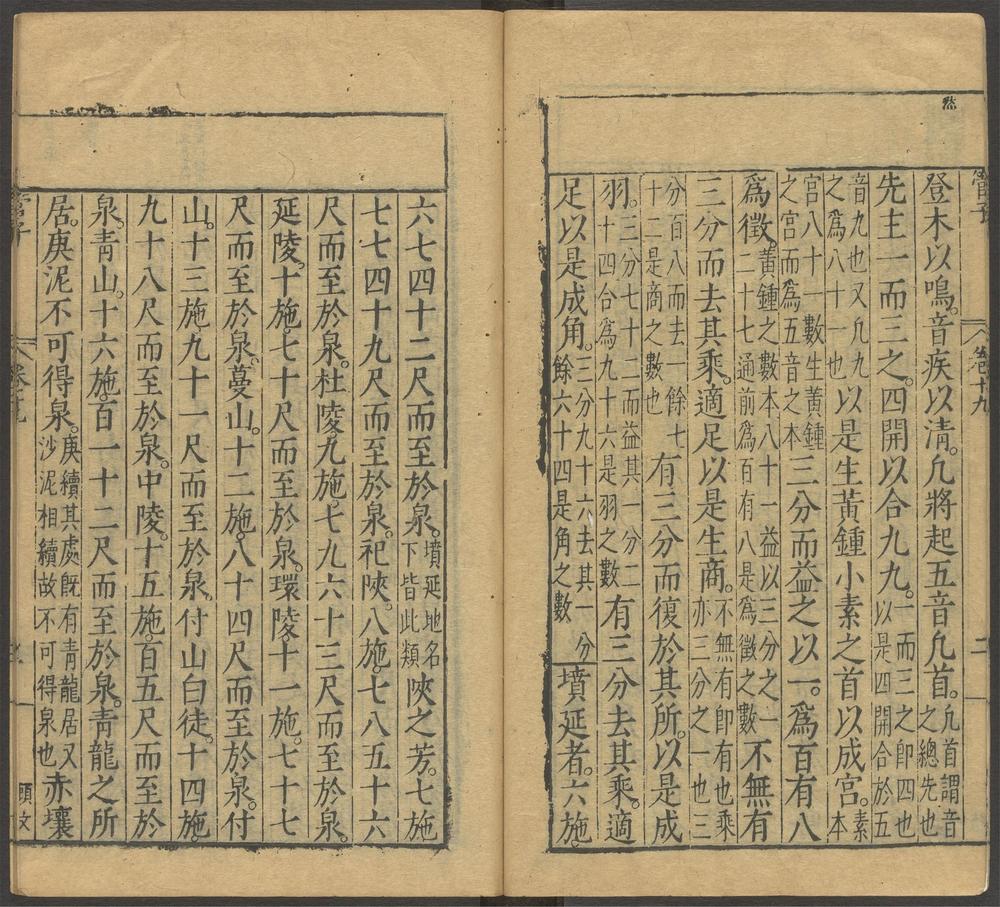 管子 卷十九 二
然
登木以鳴。音疾以清。凡將起五音凡首。凡首謂音之總先也
先主一而三之。四開以合九九。一而三之即四也以是四開合於五
音九也又九九之爲八十一也以是生黃鍾小素之首以成宮。素本
宮八十一數生黃鍾之宮而爲五音之本三分而益之以一。爲百有八
爲徵。黃鍾之數本八十一益以三分之一二十七通前爲百有八是爲徵之數不無有
三分而去其乘。適足以是生商。不無有即有也乘亦三分之一也三
分百八而去一餘七十二是商之數也有三分而復於其所。以是成
羽。三分七十二而益其一分二十四合爲九十六是羽之數有三分去其乘。適
足以是成角。三分九十六去其一分餘六十四是角之數墳延者。六施。
六七四十二尺而至於泉。墳延地名下皆此類陝之芳。七施
七七四十九尺而至於泉。祀陝。八施七八五十六
尺而至於泉。杜陵九施七九六十三尺而至於泉。
延陵。十施。七十尺而至於泉。環陵十一施。七十七
尺而至於泉。蔓山。十二施。八十四尺而至於泉。付
山。十三施九十一尺而至於泉。付山白徒。十四施。
九十八尺而至於泉。中陵。十五施。百五尺而至於
泉。青山。十六施。百一十二尺而至於泉。青龍之所
居。庚泥不可得泉。庚續其處既有青龍居又沙泥相續故不可得泉也赤壤
管子 卷十九